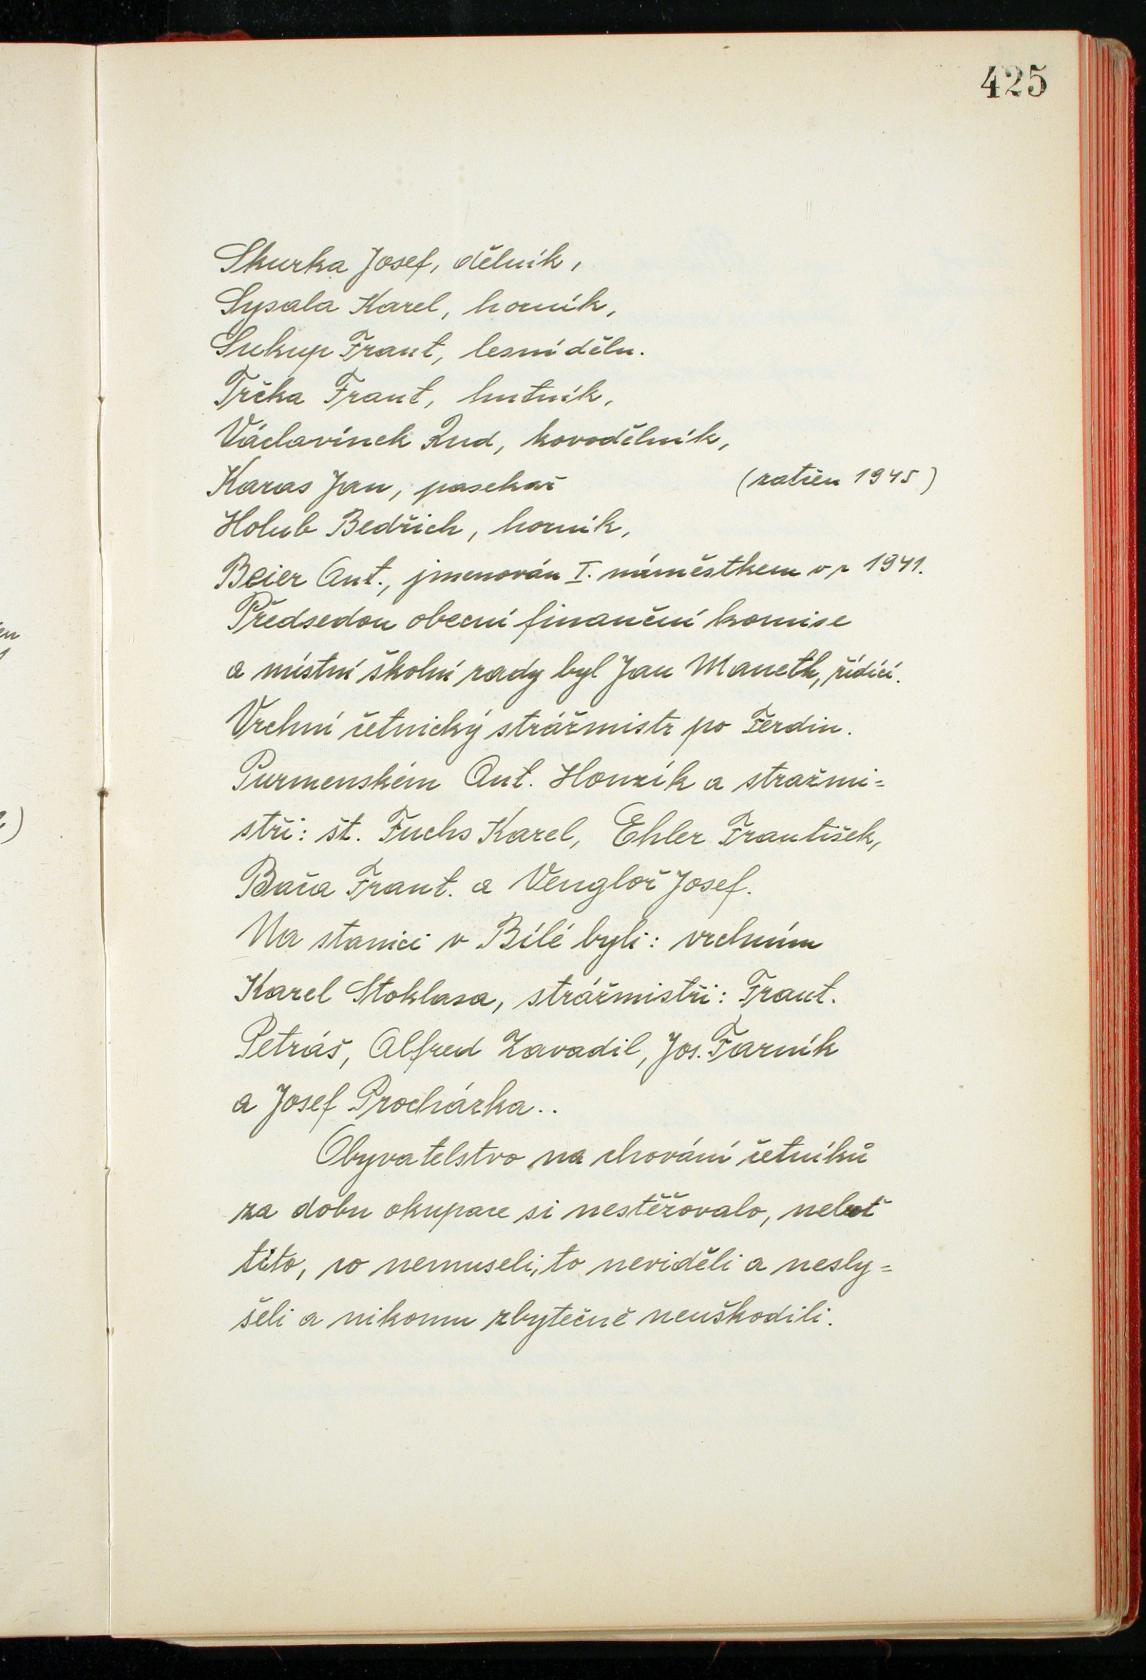 425
Skurka Josef, dělník,
Sysala Karel, horník,
Sukup Frant, lesní děln.
Trčka Frant, hutník,
Václavínek Rud, kovodělník,
Karas Jan, pasekař (zatčen 1945)
Holub Bedřich, horník,
Beier Ant., jmenován I. náměstkem v r 1941.
Předsedou obecní finanční komise
a místní školní rady byl Jan Maneth, řídící.
Vrchní četnický strážmistr po Ferdin.
Purmenském Ant. Honzík a stražmi-
stři: št. Fuchs Karel, Ehler František,
Bača Frant. a Vengloř Josef.
Na stanici v Bílé byli: vrchním
Karel Stoklasa, strážmistři: Frant.
Petráš, Alfred Zavadil, Jos. Farník
a Josef Procházka..
Obyvatelstvo na chování četníků
za dobu okupace si nestěžovalo, neboť
tito, co nemuseli, to neviděli a nesly=
šeli a nikomu zbytečně neuškodili.